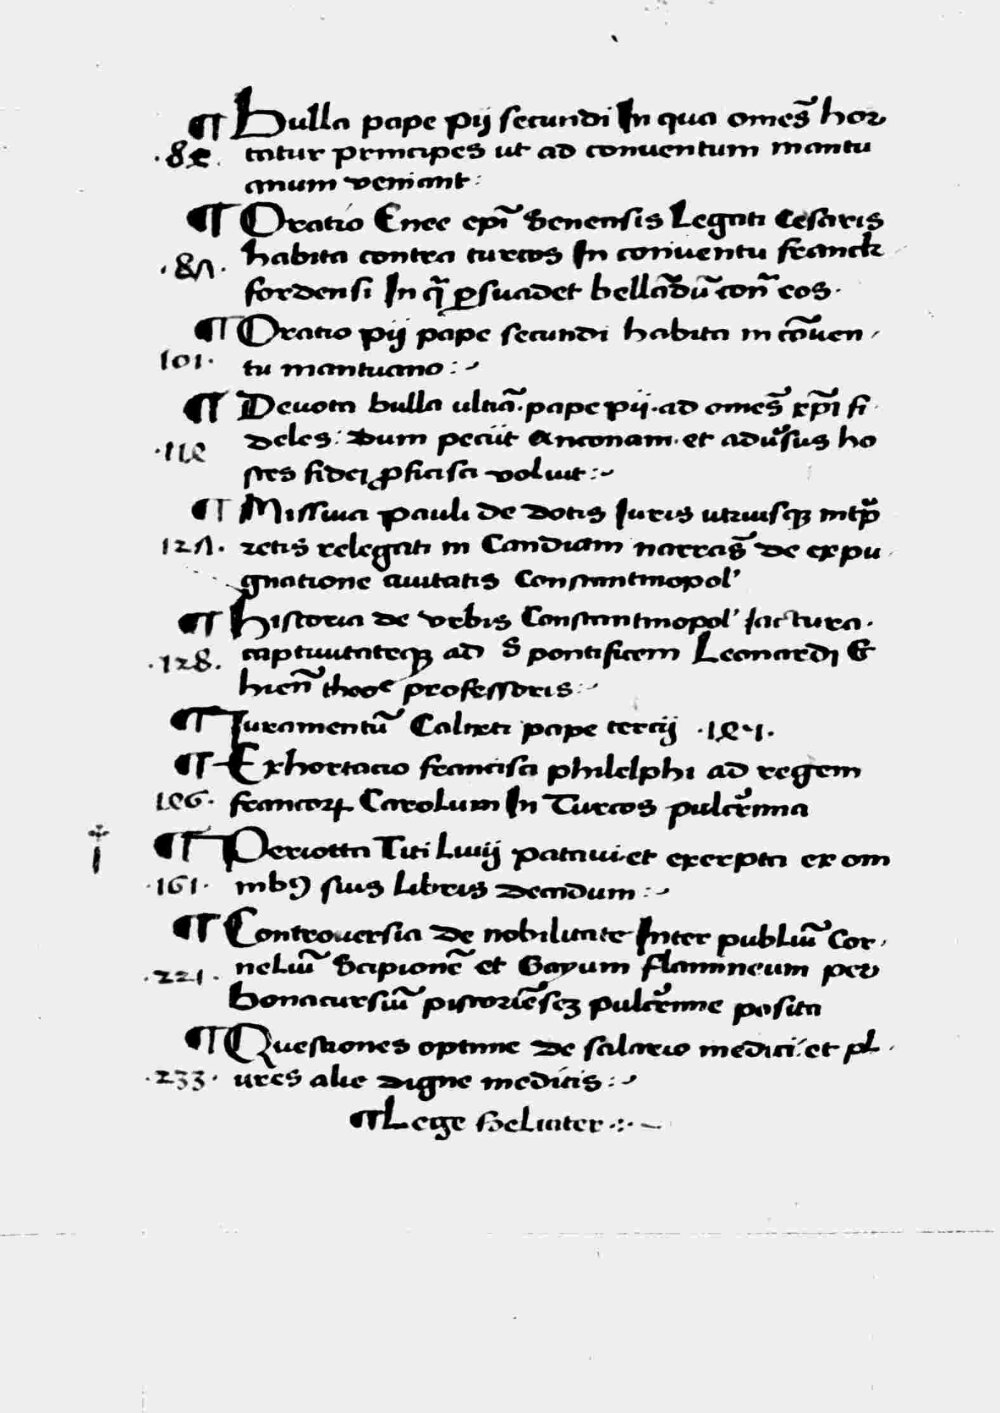 ¶ Bulla pape pij secundi In qua omēs hor
.84. tatur principes ut ad conuentum mantu
anum veniant:
¶ Oratio Enee epī Senensis Legati Cesaris
.87. habita contra turcos In conuentu franck
fordensi In q̄ ꝑsuadet bellādū con̄ eos.
¶ Oratio pij pape secundi habita in cōuen
101. tu mantuano:
¶ Deuota bulla ultiā. pape pii. ad omēs xp̄i fi
.114 deles: Dum peciit Anconam. et adūsus ho
stes fidei ꝓficisci voluit:
¶ Missiua pauli de dotis Iuris utriusqꝫ intp̄
127. retis relegati in Candiam narrās de expu
gnatione ciuitatis Constantinopol'
¶ historia de vrbis Constantinopol' iactura.
.128. captiuitateqꝫ ad S̄ pontificem Leonardi &
hien̄ theoᵉ professoris:
¶ Iuramentū Calixti pape tercij .147.
¶ Exhortacio francisci philelphi ad regem
146. francoꝝ Carolum In Turcos pulcēima
¶ Periotta Titi Liuij pataui. et exerpta ex om
.161. nibꝰ suis libris decadum:
¶ Controuersia de nobilitate Inter publiū Cor
.221. neliū Scipionē et Gayum flammineum per
bonacursiū pistoriēseꝫ pulcēime posita
¶ Questiones optime de salario medici: et pl
.233. ures alie digne meditis:
¶ Lege feliciter